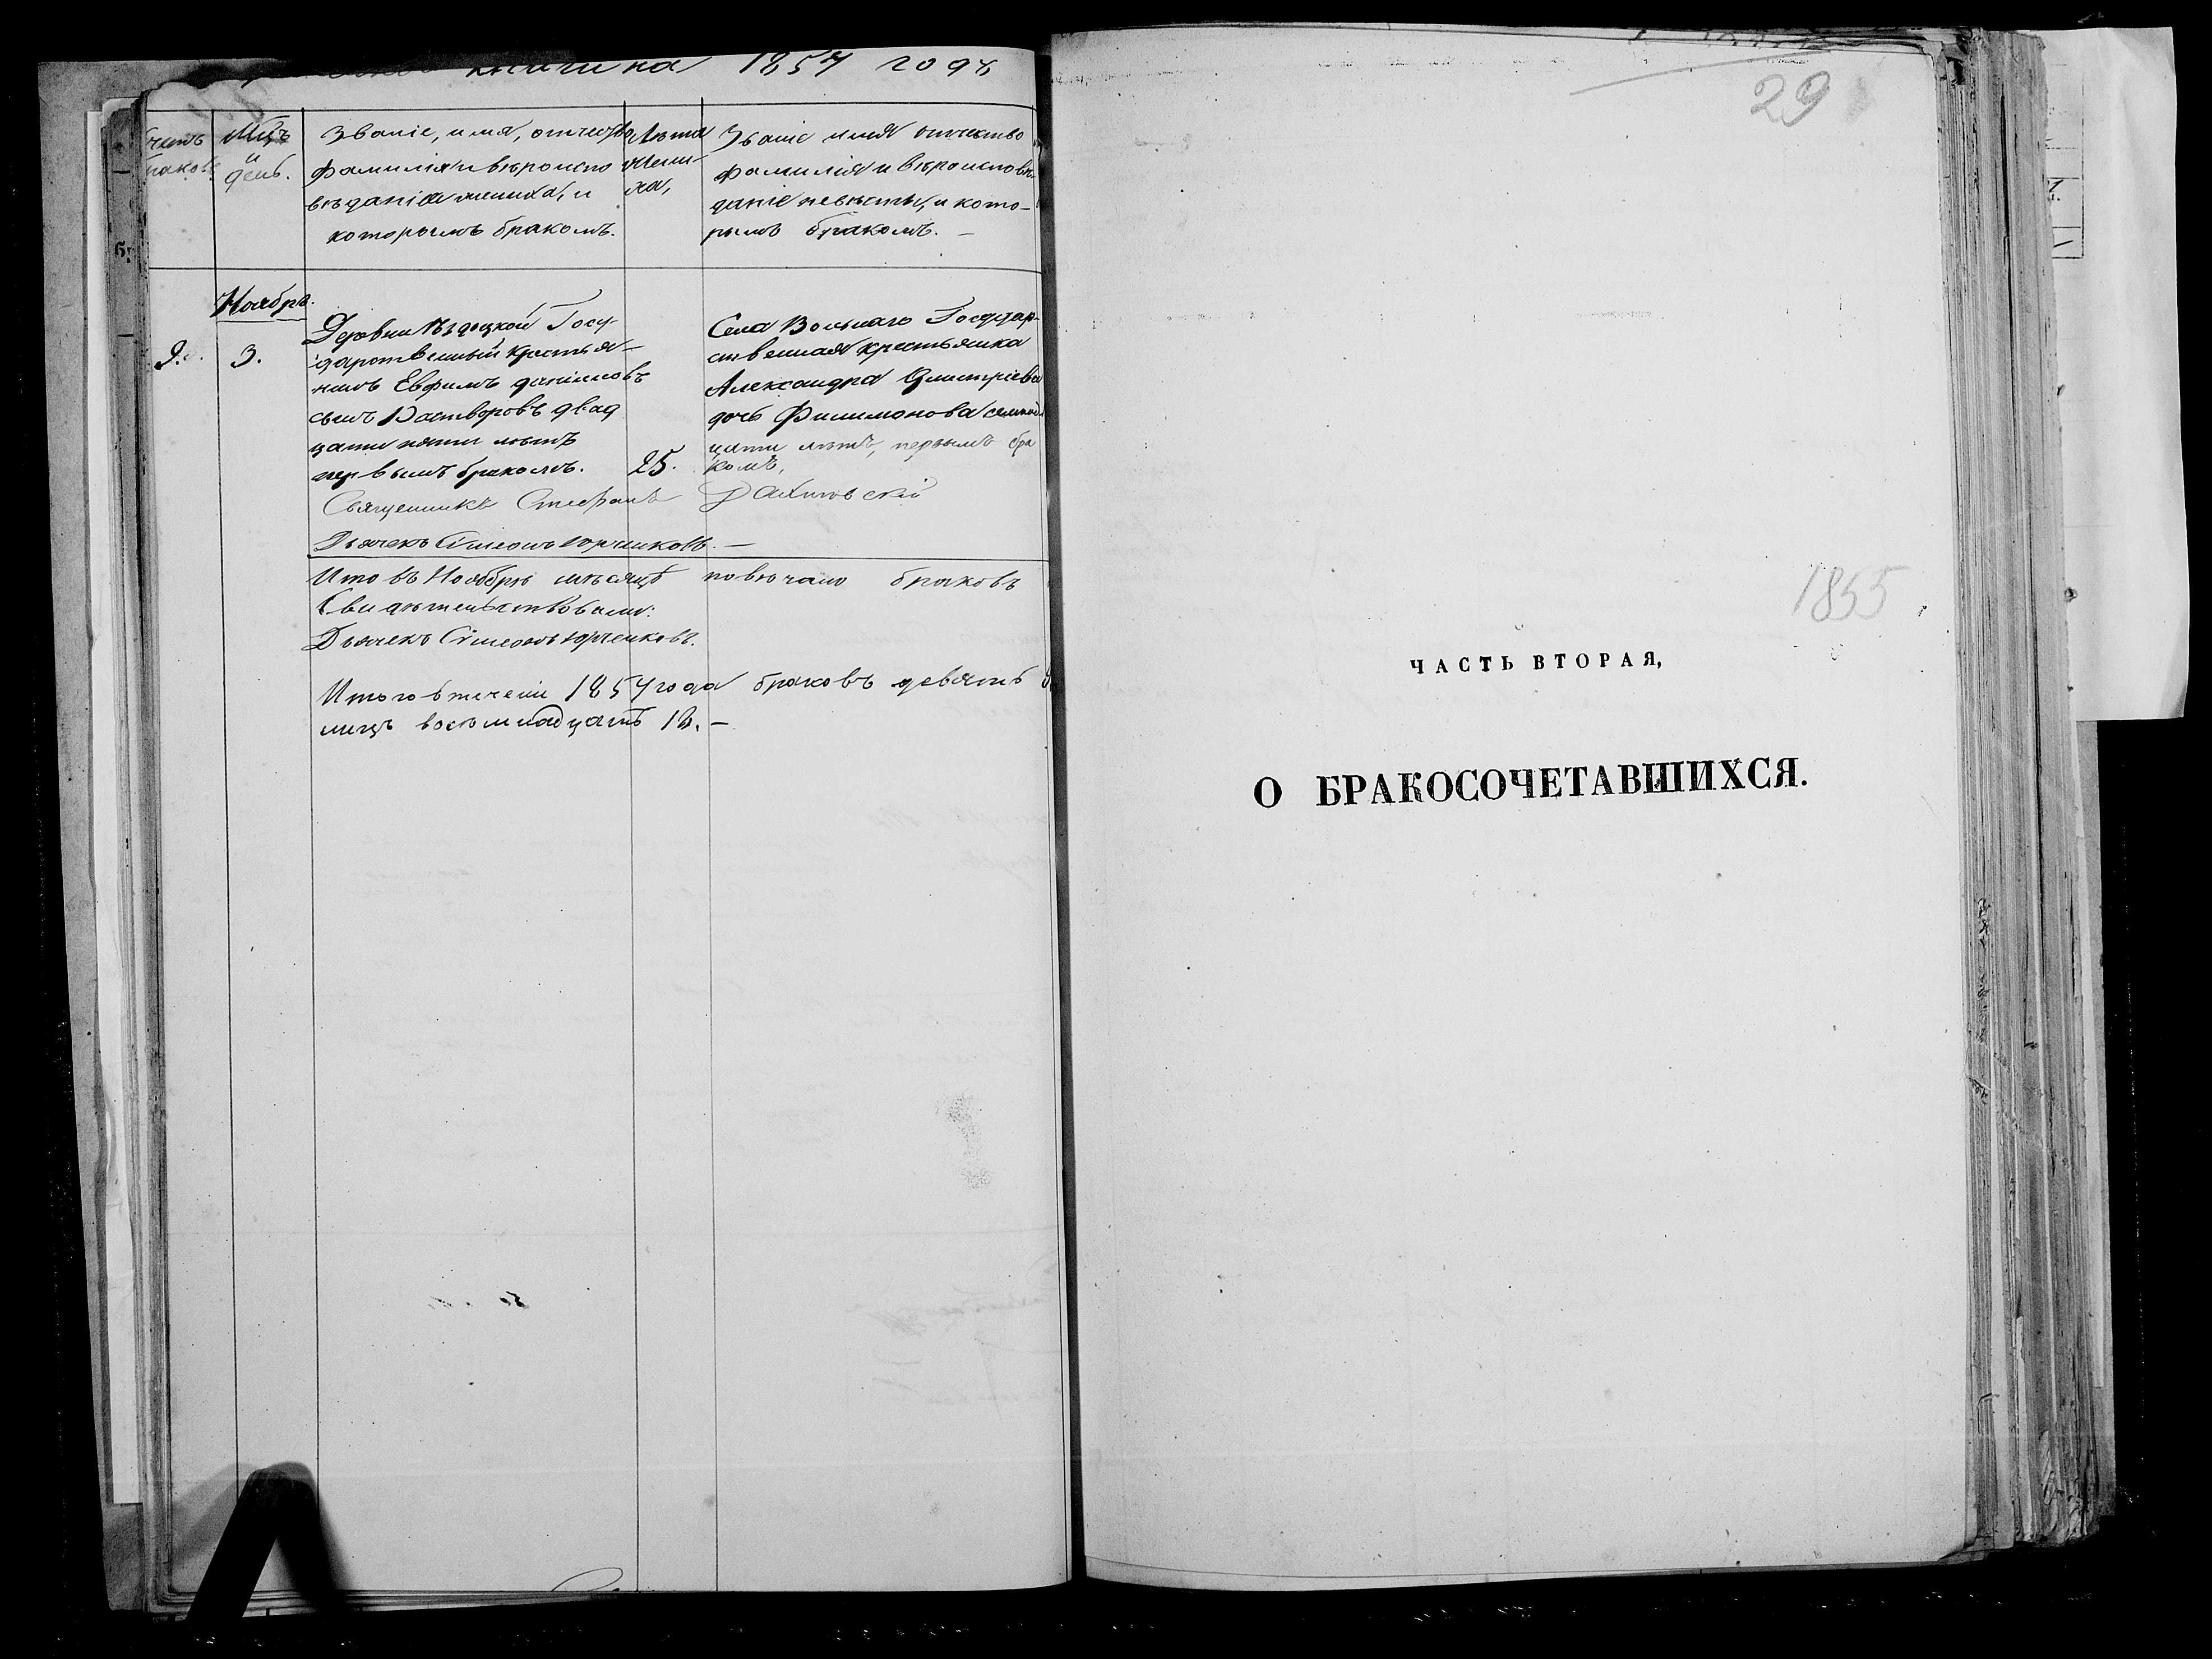 книги на 1854 годъ
Счетъ браковъ
Мцъ и день.
Званіе, имя, отчество
фамилія и вѣроиспо
вѣданіе жениха, и
которымъ бракомъ.
Лѣта
жени-
ха,
Званіе имя отчество
фамилія и вѣроисповѣ-
даніе невѣсты, и кото-
рымъ бракомъ. —
Ноябрь.
9.
3.
Деревни Госу-
дарственный крестья-
нинъ Евфимъ Даніиловъ
сынъ Растворовъ двад
цати пяти лѣтъ
первымъ бракомъ.
25.
Села Вольнаго Государ-
ственная крестьянка
Александра Дмитріева
дочь Филимонова семнад
цати лѣтъ, первымъ бра
комъ,
Священникъ Стефанъ
Дьячекъ Сімеонъ Юрченковъ. —
Итого въ Ноябрѣ мѣсяцѣ повѣнчано браковъ
Свидѣтельствовали:
Дьячекъ Сімеонъ Юрченковъ.
Итого в теченіи 1854 года браковъ девять
лицъ восемнадцать 18. —
29
1855
ЧАСТЬ ВТОРАЯ,
О БРАКОСОЧЕТАВШИХСЯ.